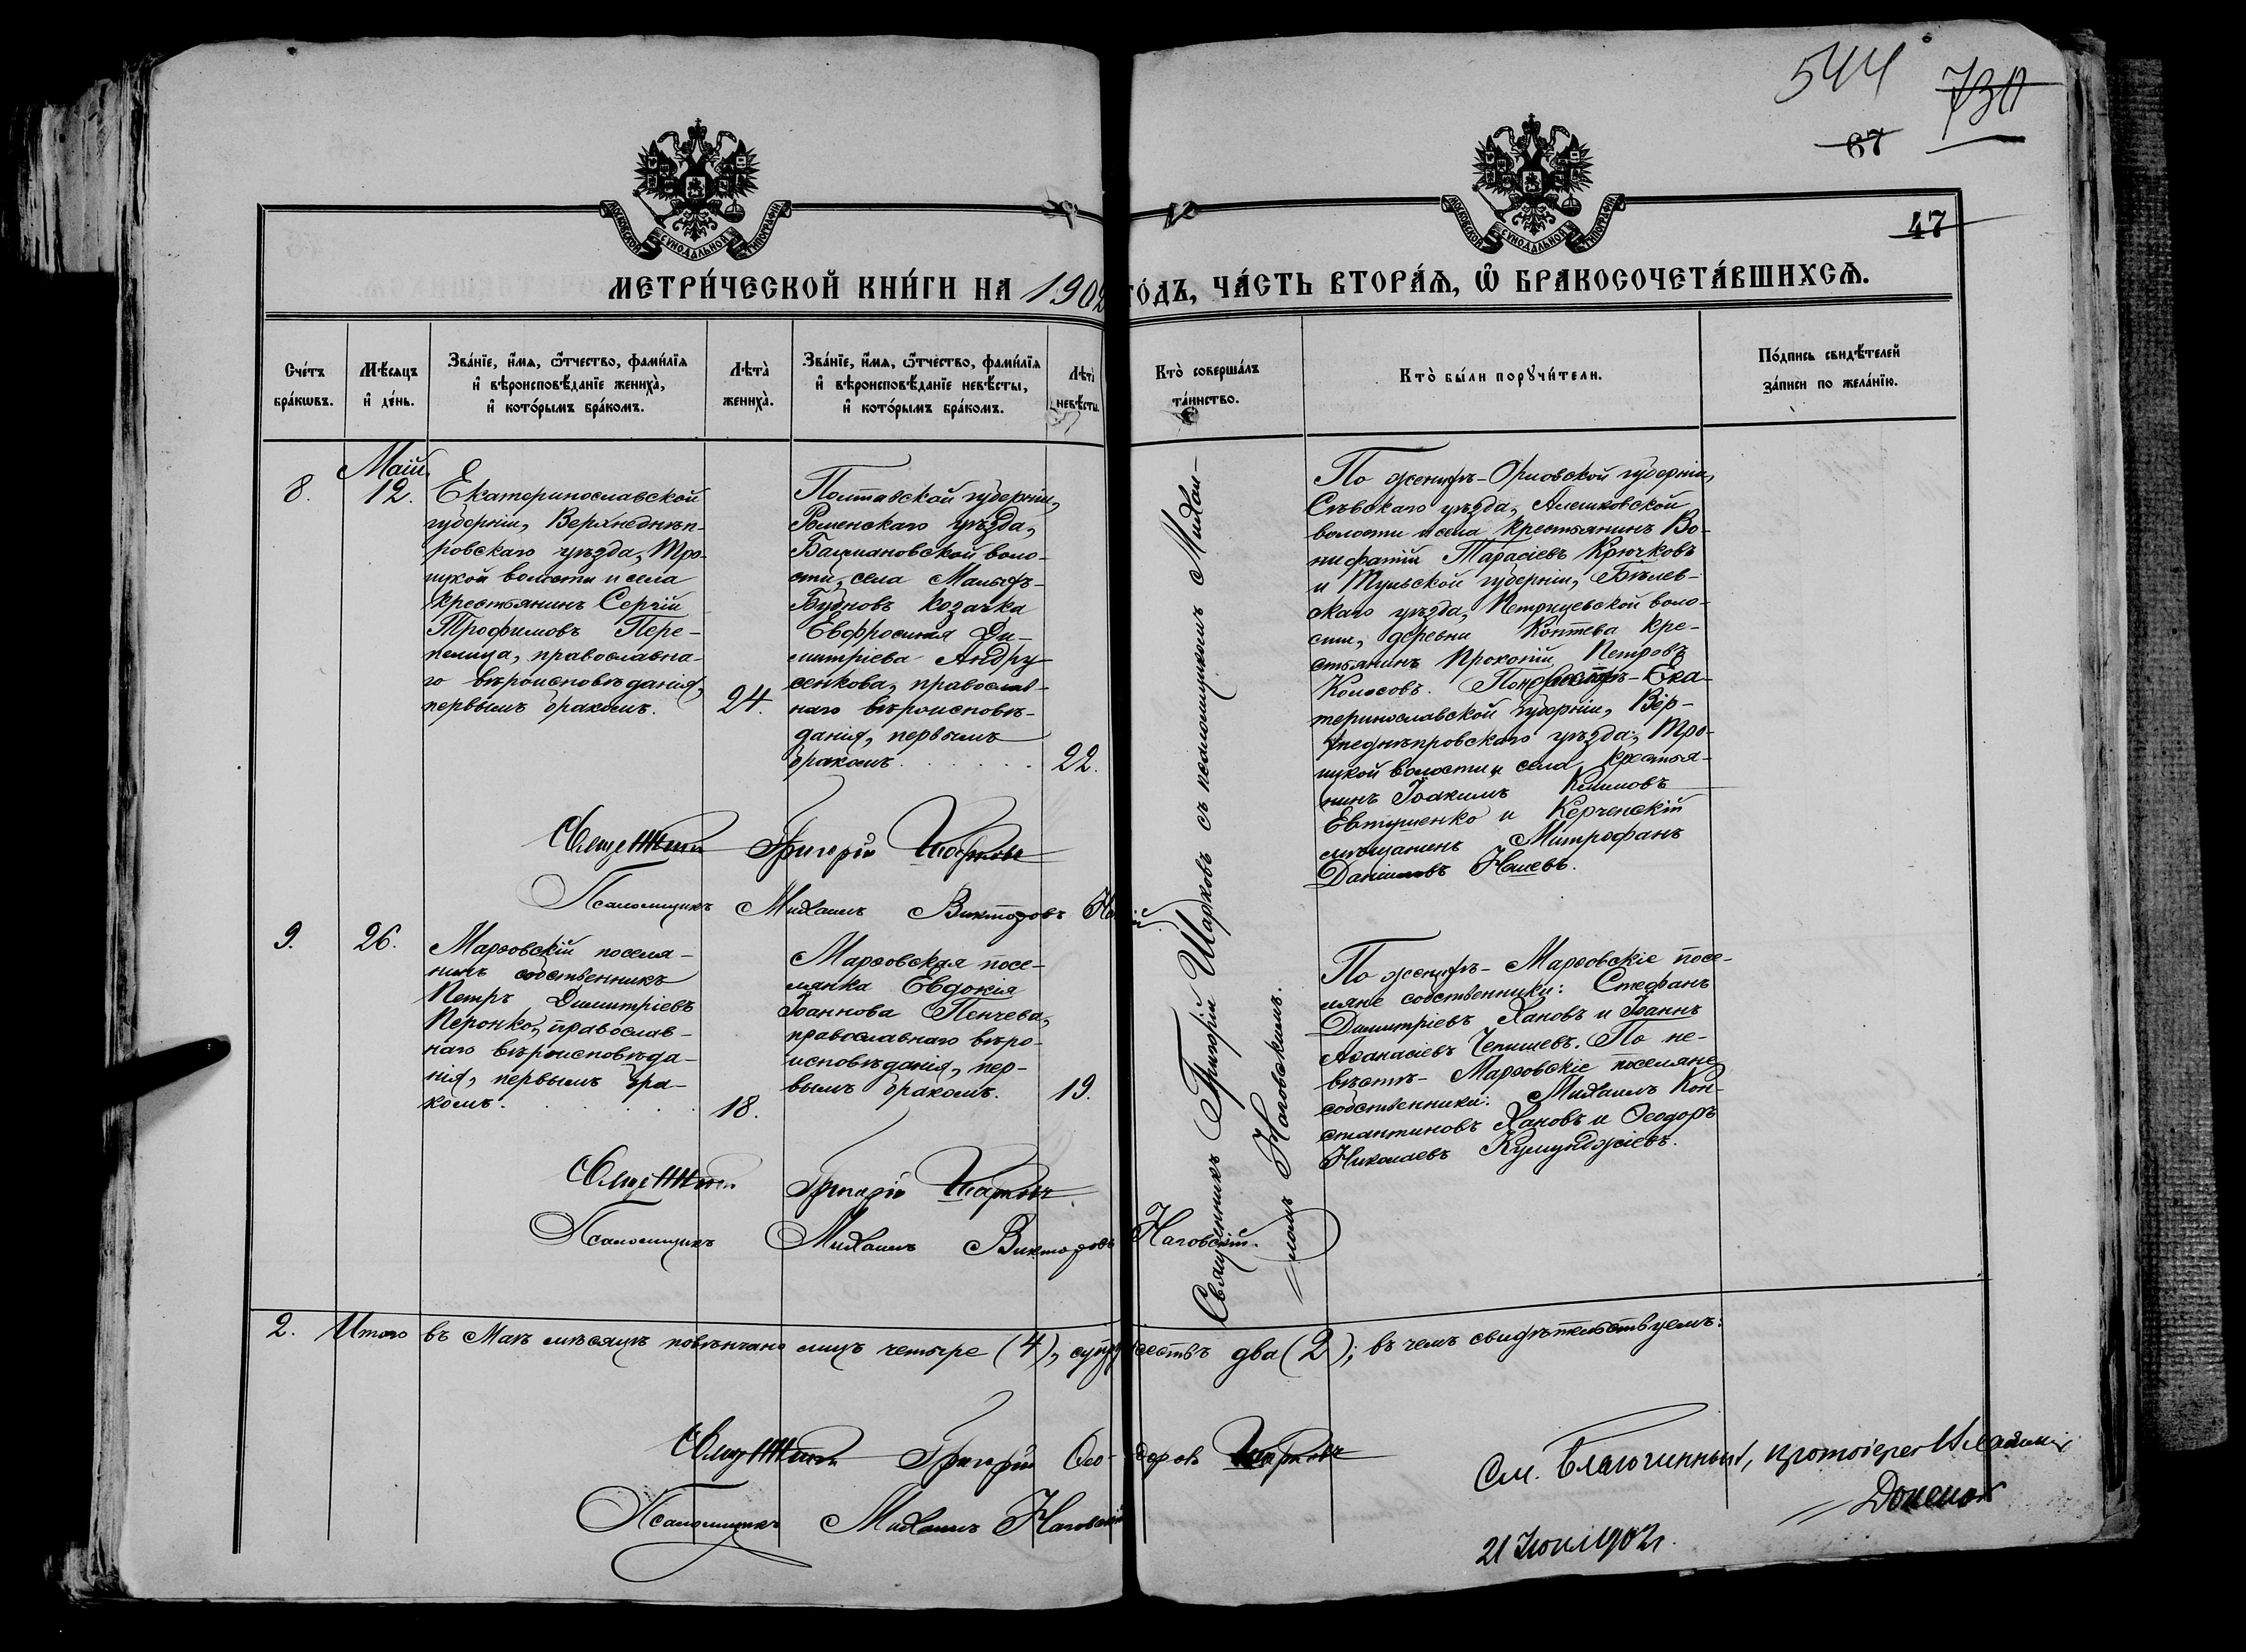 544
730
67
47
МОСКОВСКОЙ СУНОДАЛЬНОЙ ТИПОГРАФІИ
МОСКОВСКОЙ СУНОДАЛЬНОЙ ТИПОГРАФІИ
МЕТРИ́ЧЕСКОЙ КНИ́ГИ НА 1902 ГО́ДЪ, ЧА́СТЬ ВТОРА́Ѧ, Ѡ҆ БРАКОСОЧЕТА́ВШИХСѦ.
Сче́тъ
бра́кѡвъ.
Мѣ́сѧцъ
и҆ де́нь.
Зва́нїе, и҆́мѧ, ѻ҆́тчество, фами́лїѧ
и҆ вѣроисповѣ́данїе жениха̀,
и҆ кото́рымъ бра́комъ.
Лѣта̀
жениха̀.
Зва́нїе, и҆́мѧ, ѻ҆́тчество, фами́лїѧ
и҆ вѣроисповѣ́данїе невѣ́сты,
и҆ кото́рымъ бра́комъ.
Лѣта̀
невѣ́сты.
Кто̀ соверша́лъ
та́инство.
Кто̀ бы́ли порꙋчи́тели.
По́дпись свидѣ́телей
за́писи по жела́нїю.
8.
Май
12.
Екатеринославской
губерніи, Верхнеднѣп-
ровскаго уѣзда, Тро-
ицкой волости и села
крестьянинъ Сергій
Трофимовъ Пере-
пелица, православна-
го вѣроисповѣданія,
первымъ бракомъ.
24.
Полтавской губерніи,
Роменскаго уѣзда,
Бацмановской воло-
сти, села Малыхъ-
Бубновъ козачка
Евфросинія Ди-
митріева Андру
сенкова, православ-
наго вѣроисповѣ-
данія, первымъ
бракомъ.
22.
Священникъ Григорій Шарковъ съ псаломщикомъ Михаи-
ломъ Наговскимъ.
По женихѣ - Орловской губерніи,
Сѣвскаго уѣзда, Алешковской
волости и села крестьянинъ Во-
нифатій Тарасіевъ Крючковъ
и Тульской губерніи, Бѣлев-
скаго уѣзда, Петрищевской воло-
сти, деревни Коптева кре-
стьянинъ Прокопій Петровъ
Колосовъ. По невѣстѣ - Ека-
теринославской губерніи, Вер-
хнеднѣпровскаго уѣзда, Тро-
ицкой волости и села крестья-
нинъ Іоакимъ Климовъ
Евтушенко и Керченскій
мѣщанинъ Митрофанъ
Даниловъ Нашевъ.
Священникъ Григорій Шарковъ
Псаломщикъ Михаилъ Викторовъ
9.
26.
Марѳовскій поселя-
нинъ собственникъ
Петръ Димитріевъ
Перонко, православ-
наго вѣроисповѣда-
нія, первымъ бра-
комъ.
18.
Марѳовская посе-
лянка Евдокія
Іоаннова Пенчева,
православнаго вѣро-
исповѣданія, пер-
вымъ бракомъ.
19.
По женихѣ - Марѳовскіе посе-
ляне собственники: Стефанъ
Димитріевъ Хановъ и Іоаннъ
Аѳанасіевъ Чепишевъ. По не-
вѣстѣ - Марѳовскіе поселяне
собственники: Михаилъ Кон-
стантиновъ Хановъ и Ѳеодоръ
Николаевъ Кумунджіевъ.
Священникъ Григорій Шарковъ
Псаломщикъ Михаилъ Викторовъ Наговскій.
2. Итого въ Маѣ мѣсяцѣ повѣнчано лицъ четыре (4), супружествъ два (2); въ чемъ свидѣтельствуемъ:
Священникъ Григорій Ѳеодоровъ Шарковъ
Псаломщикъ Михаилъ Наговскій
См. Благочинный, протоіерей
21 Іюня 1902 г.